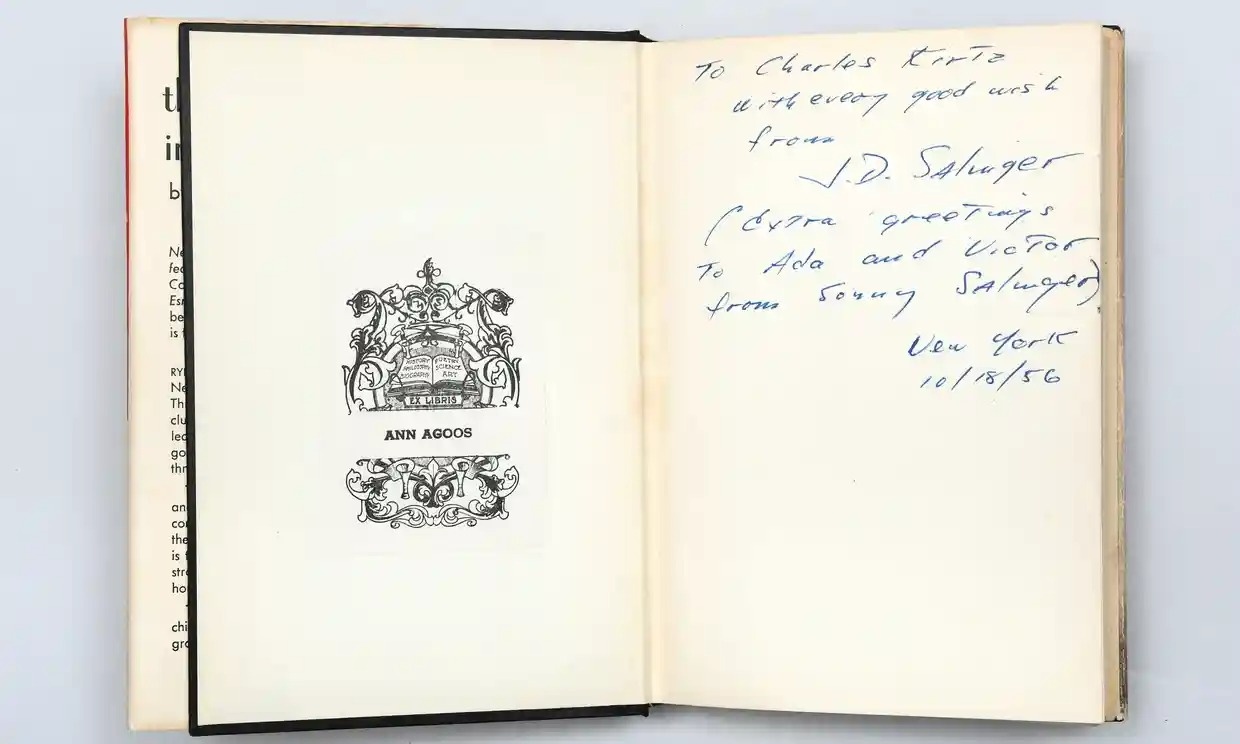 th
in
b
Ne
fea
Co
Esn
be
is
RY
Ne
Th
clu
lea
go
thr
an
co
the
is
stra
ho
chi
gra
HISTORY
PHILOSOPHY
BIOGRAPHY
POETRY
SCIENCE
ART
EX LIBRIS
ANN AGOOS
To Charles Kirtz
with every good wish
from
J.D. Salinger
(Extra greetings
To Ada and Victor
from Sonny Salinger)
New York
10/18/56